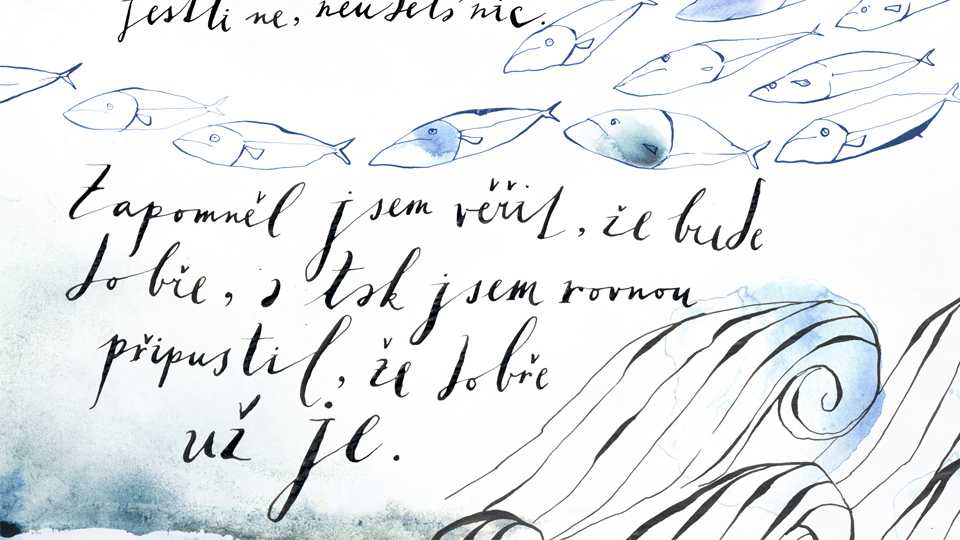 Jestli ne, neušels nic.
Zapomněl jsem věřit, že bude
dobře, a tak jsem rovnou
připustil, že dobře
už je.